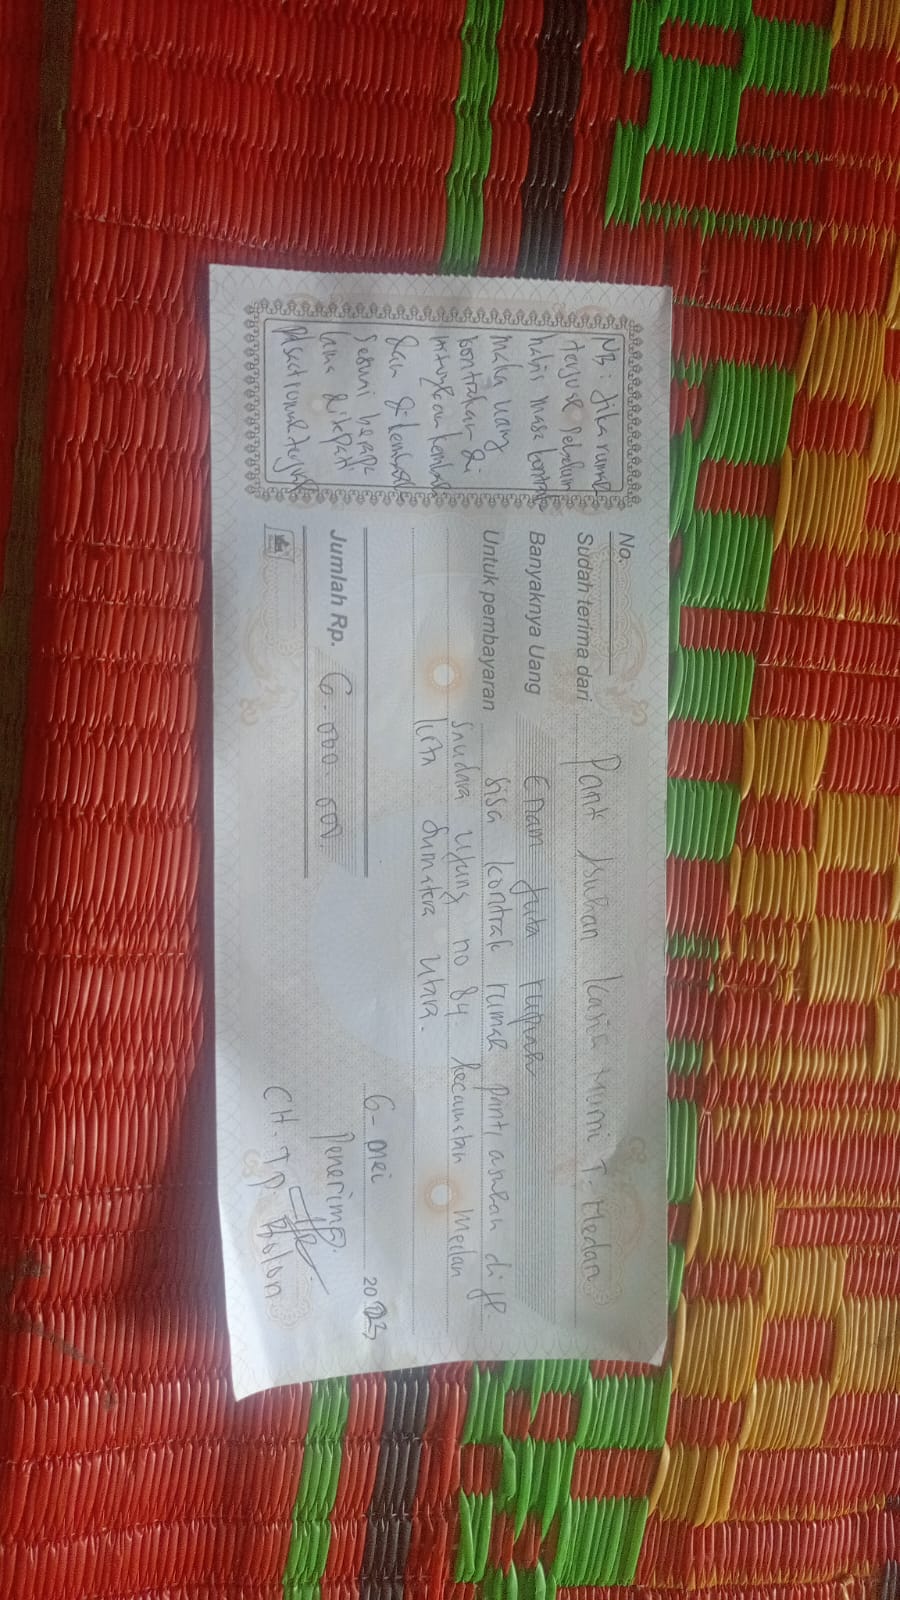 NB: Jika rumah
terjual sebelum
habis masa kontrak
maka uang
kontrakan di
hitungkan kembali
dan di kembali
sesuai berapa
lama ditepati
No.
Sudah terima dari Panti Asuhan Kasih Murni T= Medan
Banyaknya Uang Enam Juta rupiah
Untuk pembayaran Sisa kontrak rumah Panti asuhan di Jl.
Saudara Ujung no 84 kecamatan Medan
kota Sumatera Utara.
6 - Mei 2023
Jumlah Rp. 6.000.000
Penerima.
CH. TP. Bolon